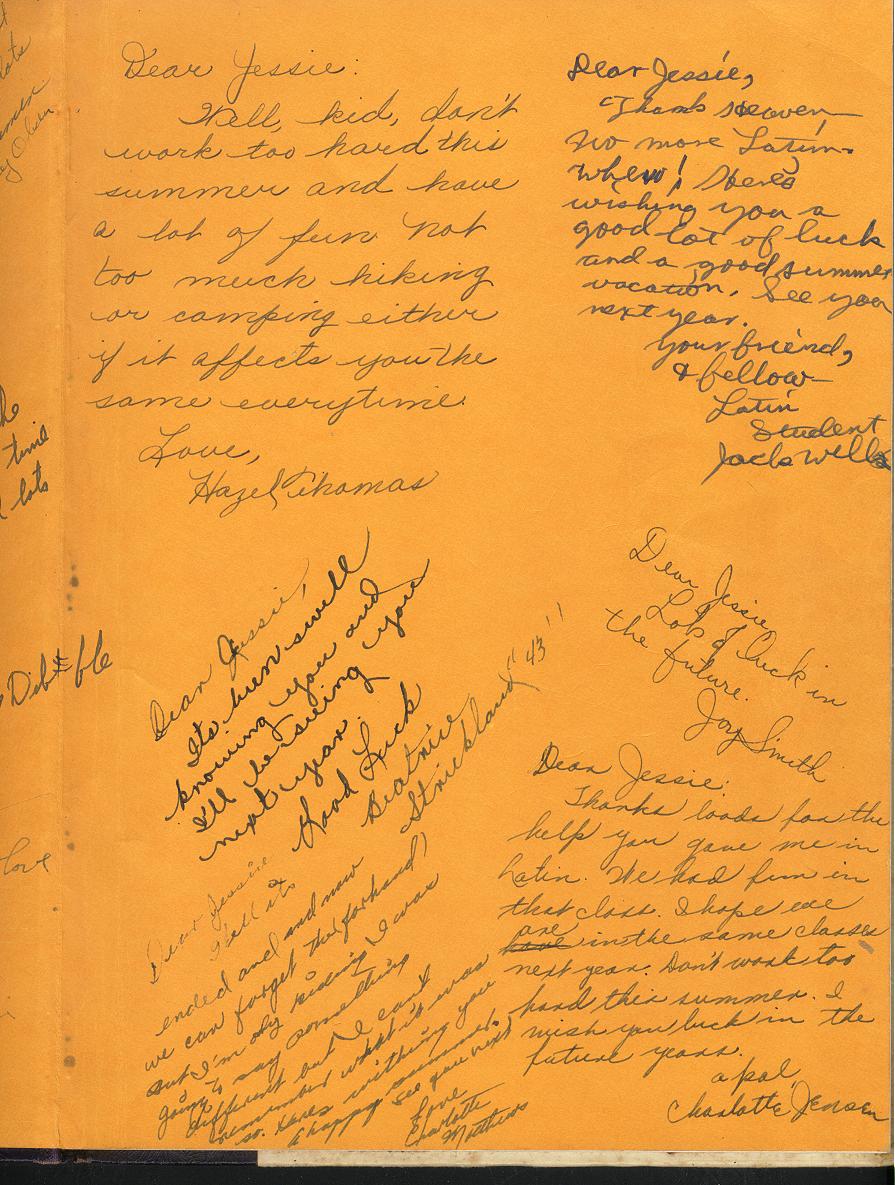 Dear Jessie:
Well, kid, don't
work too hard this
summer and have
a lot of fun not
too much hiking
or camping either
if it affects you the
same everytime.
Love,
Hazel Thomas
Dear Jessie,
Thank Heaven
no more Latin.
whew! Here's
wishing you a
good lot of luck
and a good summer
vacation. See you
next year.
your friend,
& fellow
Latin
Student
Jack Wells
Dear Jessie,
Its been swell
knowing you and
I'll be seeing you
next year.
Good Luck
Beatrice
Strickland "43"
Dear Jessie,
Lots of luck in
the future.
Joy Smith
Dear Jessie:
Thanks loads for the
help you gave me in
Latin. We had fun in
that class. I hope we
are
have in the same classes
next year. Don't work too
hard this summer. I
wish you luck in the
future years.
a pal,
Charlotte Jensen
Dear Jessie
Well its
ended and and now
we can forget the (forhand)
but I'm only kiding I was
going to say something
different but I can't
remember what it was
so. Heres withing you
a happy summer.
See you next
Love
Charlotte
Matthews
lots
Olsen
he
time
lots
Debate 66
love